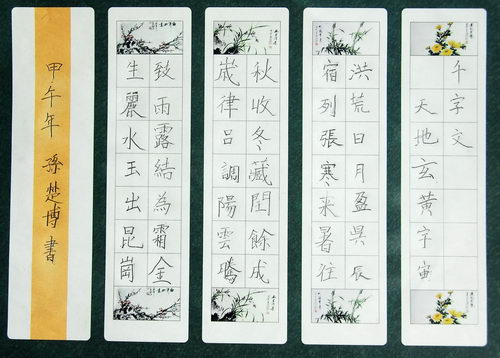 千字文
天地玄黃宇宙
洪荒日月盈昃辰
宿列張寒來暑往
秋收冬藏閏餘成
歲律呂調陽雲騰
致雨露結為霜金
生麗水玉出崑崗
甲午年 孫楚博書